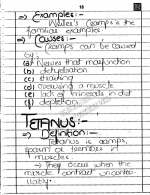 18
=> Examples:-
Writer's cramps is the
familiar examples
=> Causes:-
Cramps can be caused
of:-
(a) Nerves that malfunction
(b) dehydration
(c)
(d) overusing a muscle
(e) lack of minerals in diet
(f) depletion.
TETANUS:-
=> Definition:-
Tetanus is cramps,
spasm or
muscles.
-> They occur when the
muscle contract